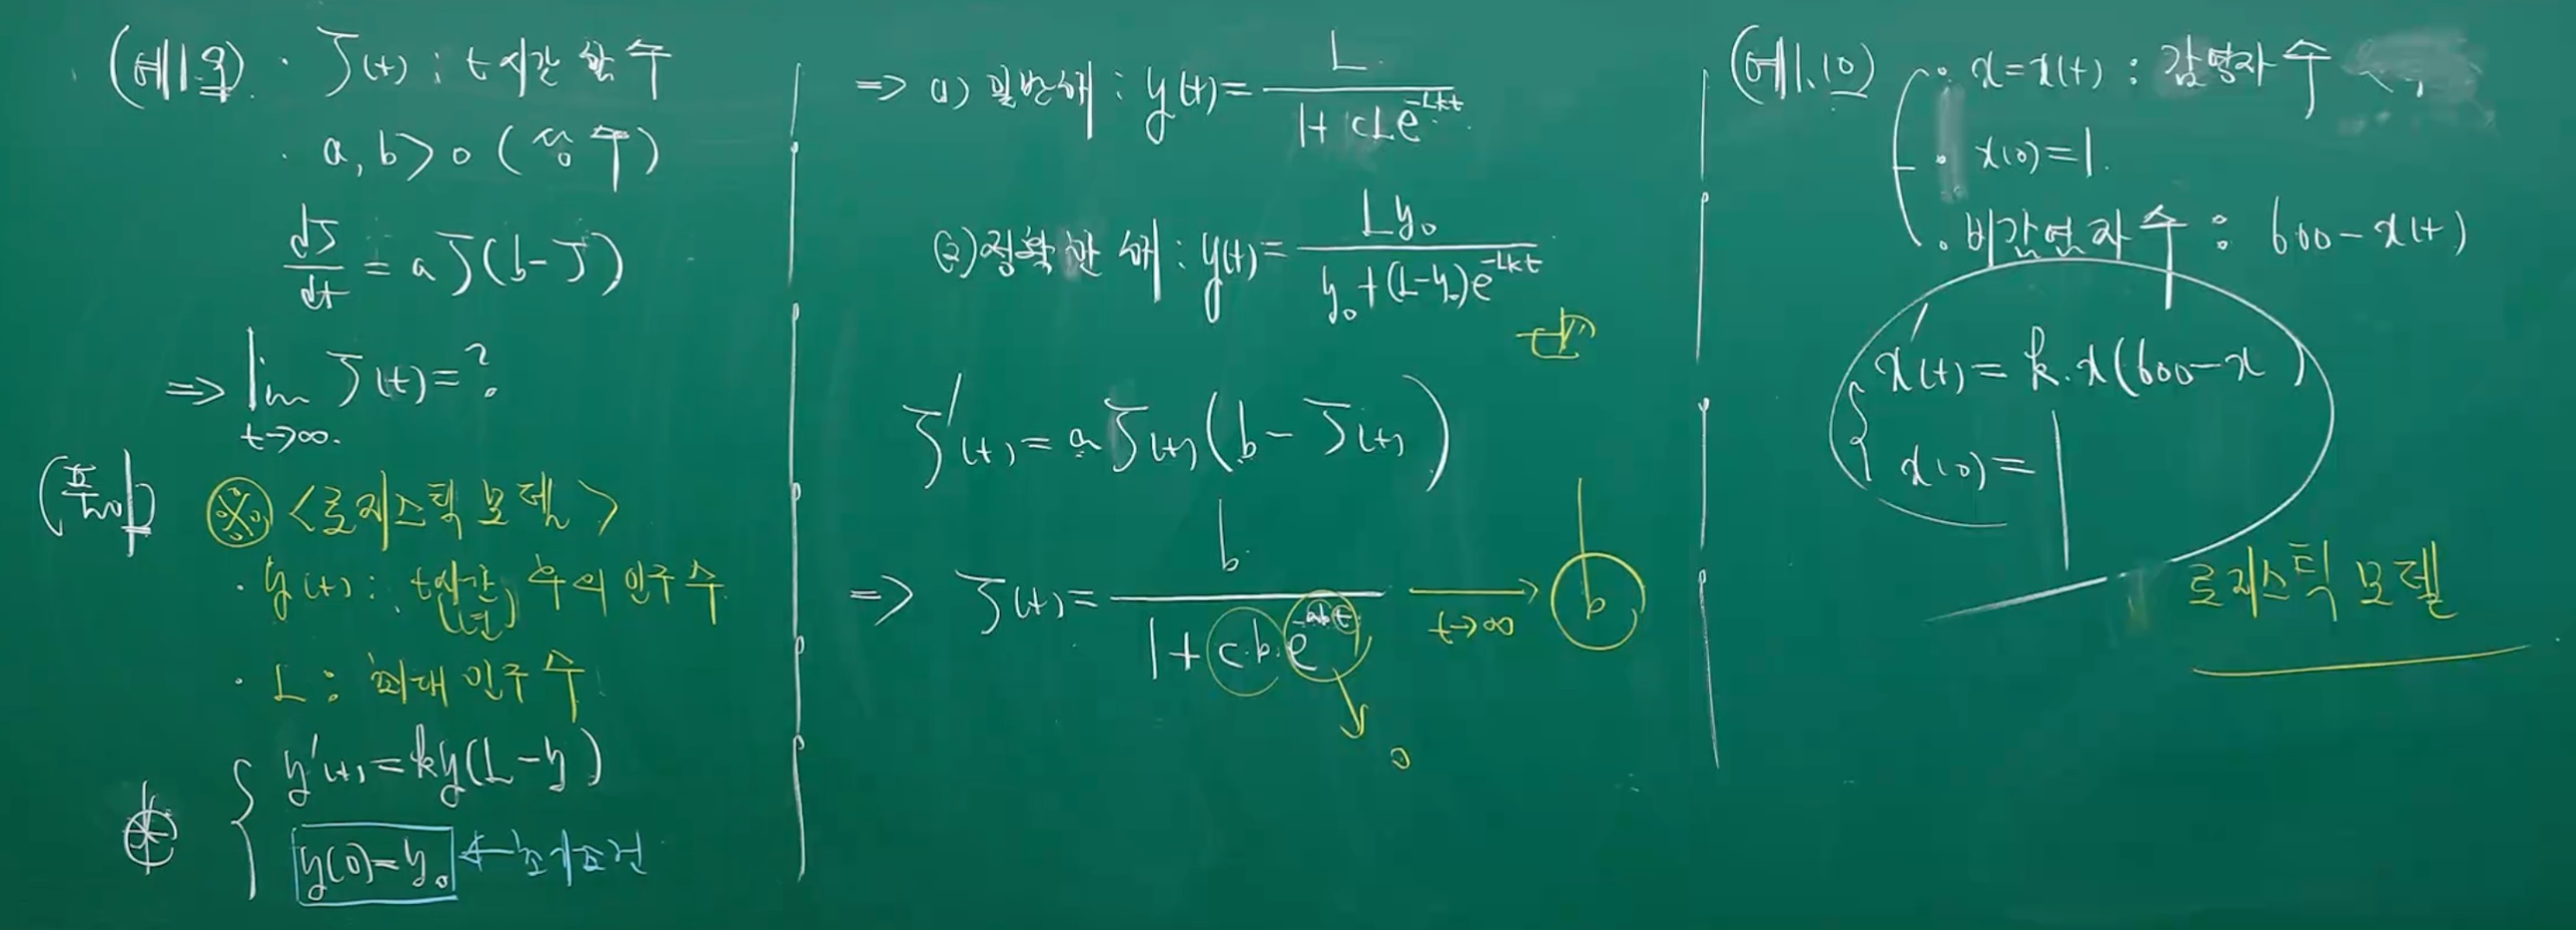 (예1.9) · J(t) : t시간 함수
· a, b > 0 (상수)
dJ/dt = aJ(b-J)
⇒ lim t→∞ J(t) = ?
(풀이) ※ <로지스틱 모델>
· y(t) : t시간(년) 후의 인구수
· L : 최대 인구수
y'(t) = ky(L-y)
y(0) = y₀ ← 초기조건
⇒ a) 일반해 : y(t) = L / (1 + cLe^(-Lkt))
(2) 정확한 해 : y(t) = Ly₀ / (y₀ + (L-y₀)e^(-Lkt))
J'(t) = aJ(t)(b - J(t))
⇒ J(t) = b / (1 + c·b·e^(-abt)) → t→∞ b
0
(예1.10) · x = x(t) : 감염자 수
· x(0) = 1.
· 비감염자 수 : 600 - x(t)
x'(t) = k·x(600-x)
x(0) = 1
로지스틱 모델